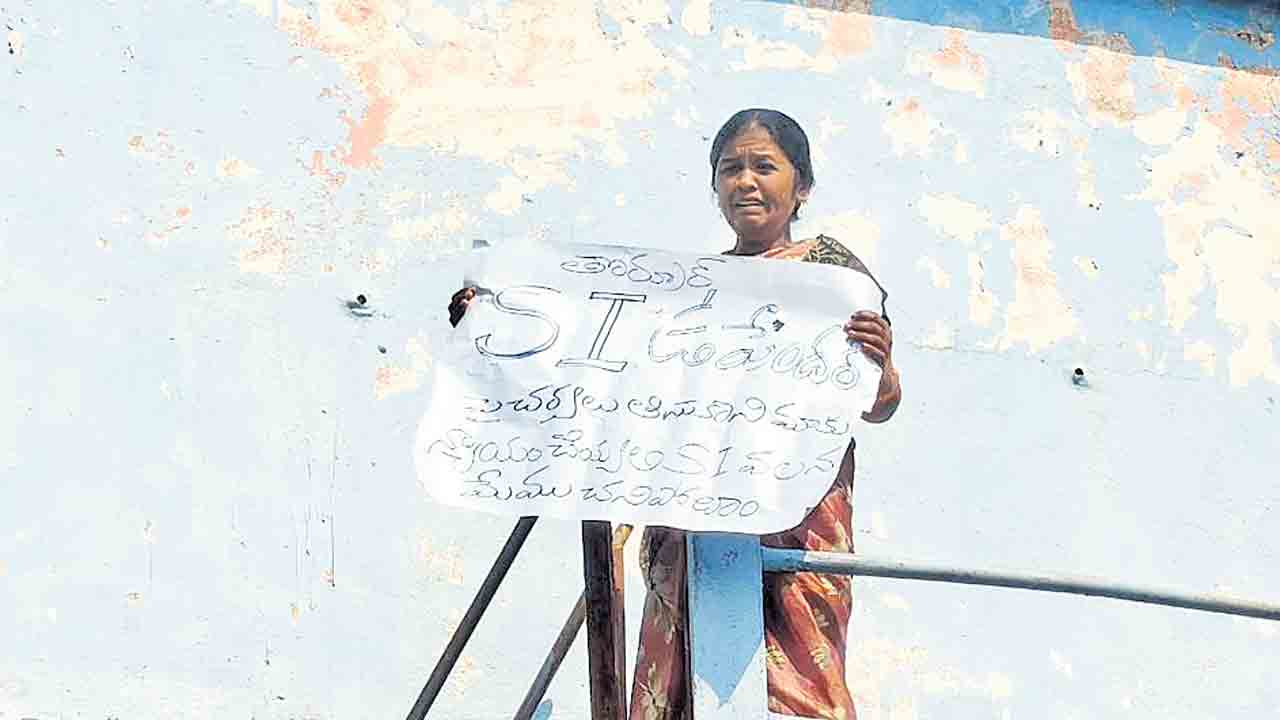 తొర్రూర్
SI ఉపేందర్
పై చర్యలు తీసుకొని మాకు
న్యాయం చెయ్యాలి SI వలన
మేము చనిపోతాం